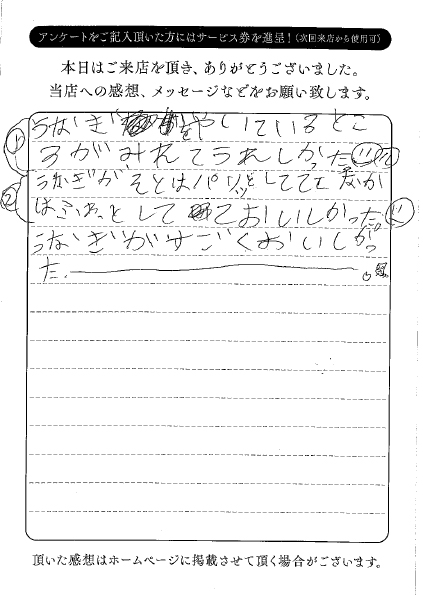 アンケートをご記入頂いた方にはサービス券を進呈！（次回来店から使用可）
本日はご来店を頂き、ありがとうございました。
当店への感想、メッセージなどをお願い致します。
① うなぎをやしているとこ
ろがみれてうれしかった
② うなぎがそとはパリッとしてて なか
はふわっとして ておいしかった。
うなぎがすごくおいしかっ
た。
頂いた感想はホームページに掲載させて頂く場合がございます。